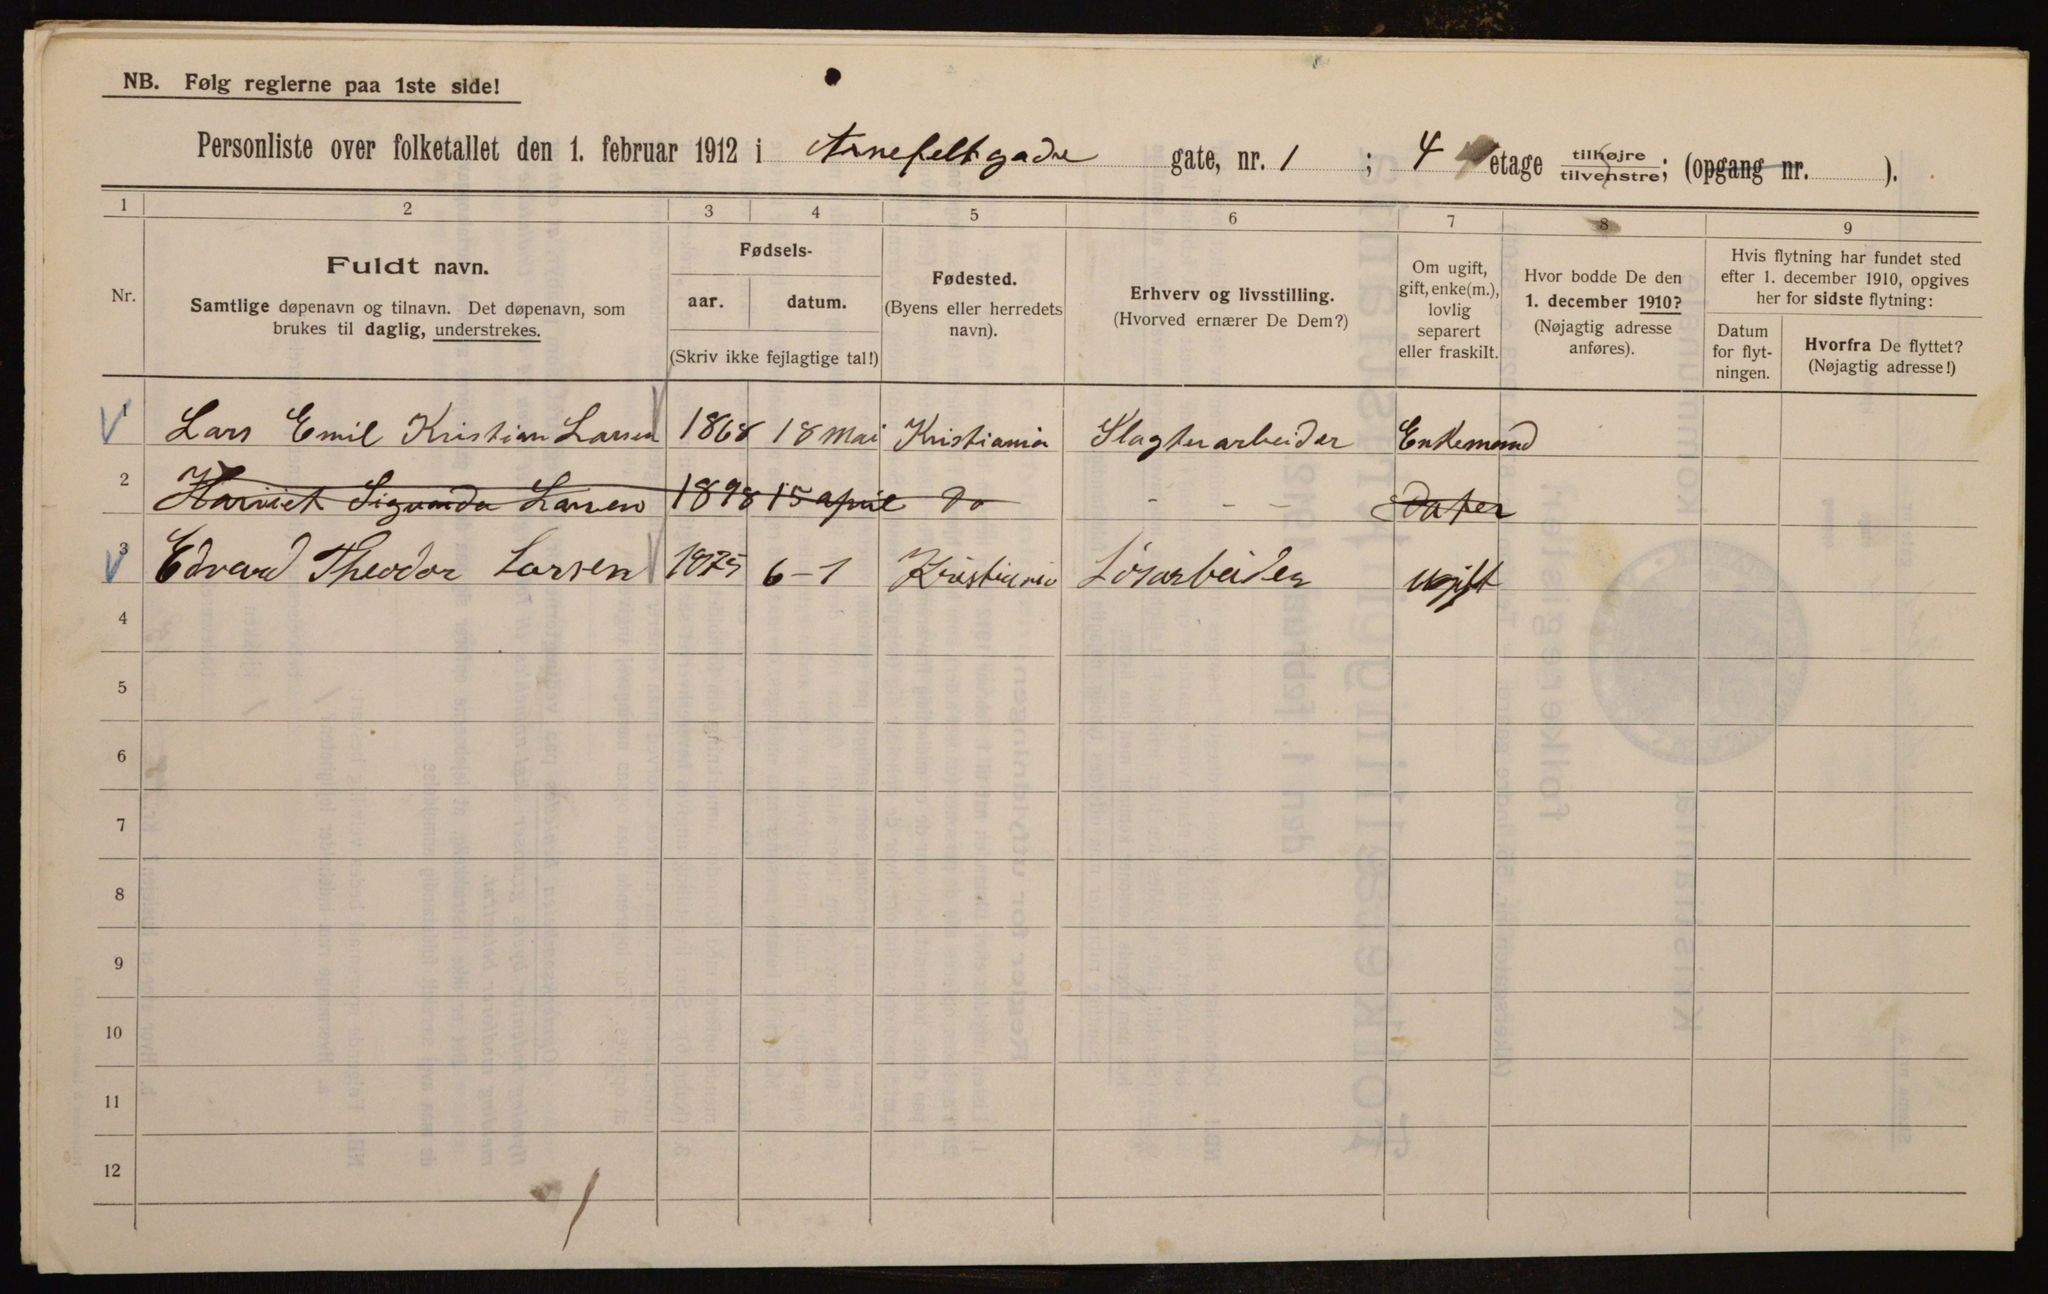 NB. Følg reglerne paa 1ste side!
Personliste over folketallet den 1. februar 1912 i Arnefeltgade gate, nr. 1 ; 4 etage tilhøjre tilvenstre; (opgang nr. ).
1 2 3 4 5 6 7 8 9
Nr.
Fuldt navn.
Samtlige døpenavn og tilnavn. Det døpenavn, som
brukes til daglig, understrekes.
Fødsels-
aar. datum.
(Skriv ikke fejlagtige tal!)
Fødested.
(Byens eller herredets
navn).
Erhverv og livsstilling.
(Hvorved ernærer De Dem?)
Om ugift,
gift, enke(m.),
lovlig
separert
eller fraskilt.
Hvor bodde De den
1. december 1910?
(Nøjagtig adresse
anføres).
Hvis flytning har fundet sted
efter 1. december 1910, opgives
her for sidste flytning:
Datum
for flyt-
ningen.
Hvorfra De flyttet?
(Nøjagtig adresse!)
1 Lars Emil Kristian Larsen 1868 18 Mai Kristiania Slagterarbeider Enkemand
2 Harriet Sigunda Larsen 1898 15 april Do - - Dater
3 Edvard Theodor Larsen 1875 6-1 Kristiania Løsarbeider ugift
4
5
6
7
8
9
10
11
12